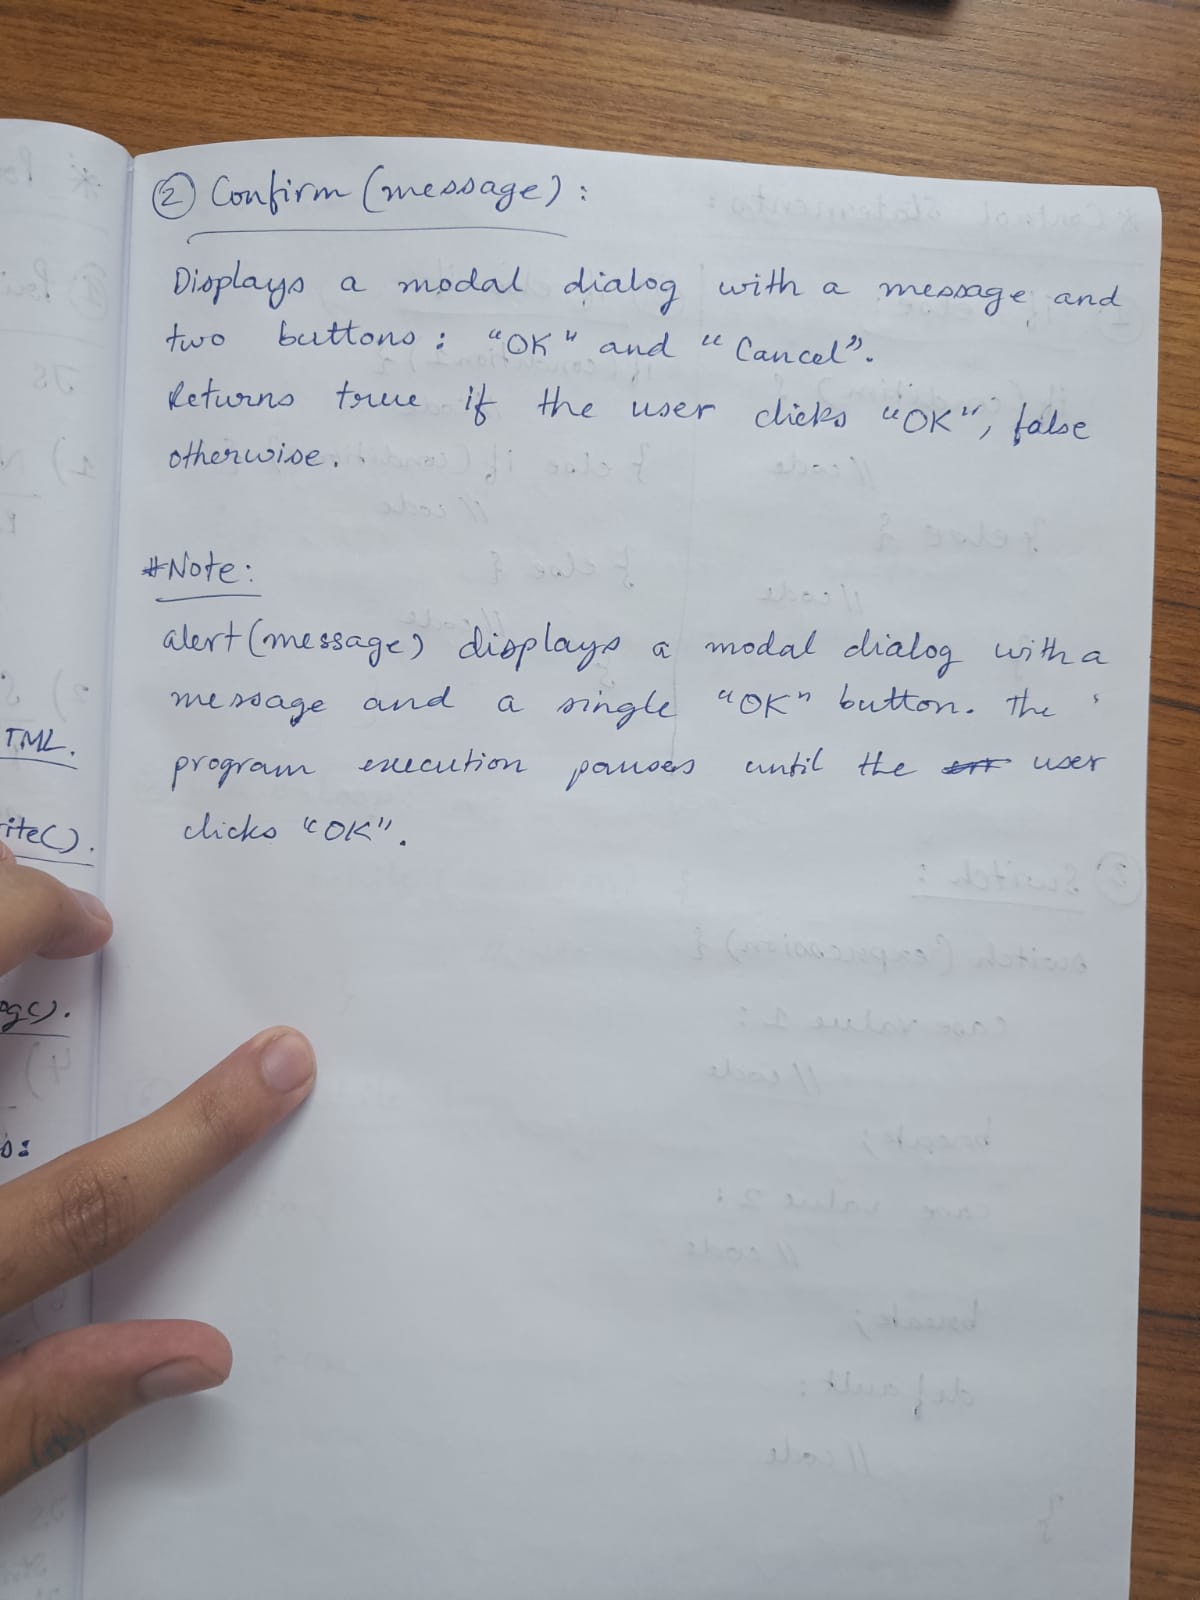 ② Confirm (message) :
Displays a modal dialog with a message and
two buttons : "OK" and "Cancel".
Returns true if the user clicks "OK", false
otherwise.
#Note:
alert(message) displays a modal dialog with a
message and a single "OK" button. The
program execution pauses until the user
clicks "OK".
TML.
rite().
og().
s: